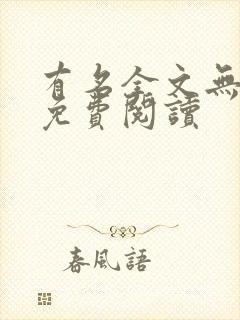 有名全文無
免費閱讀
春風語